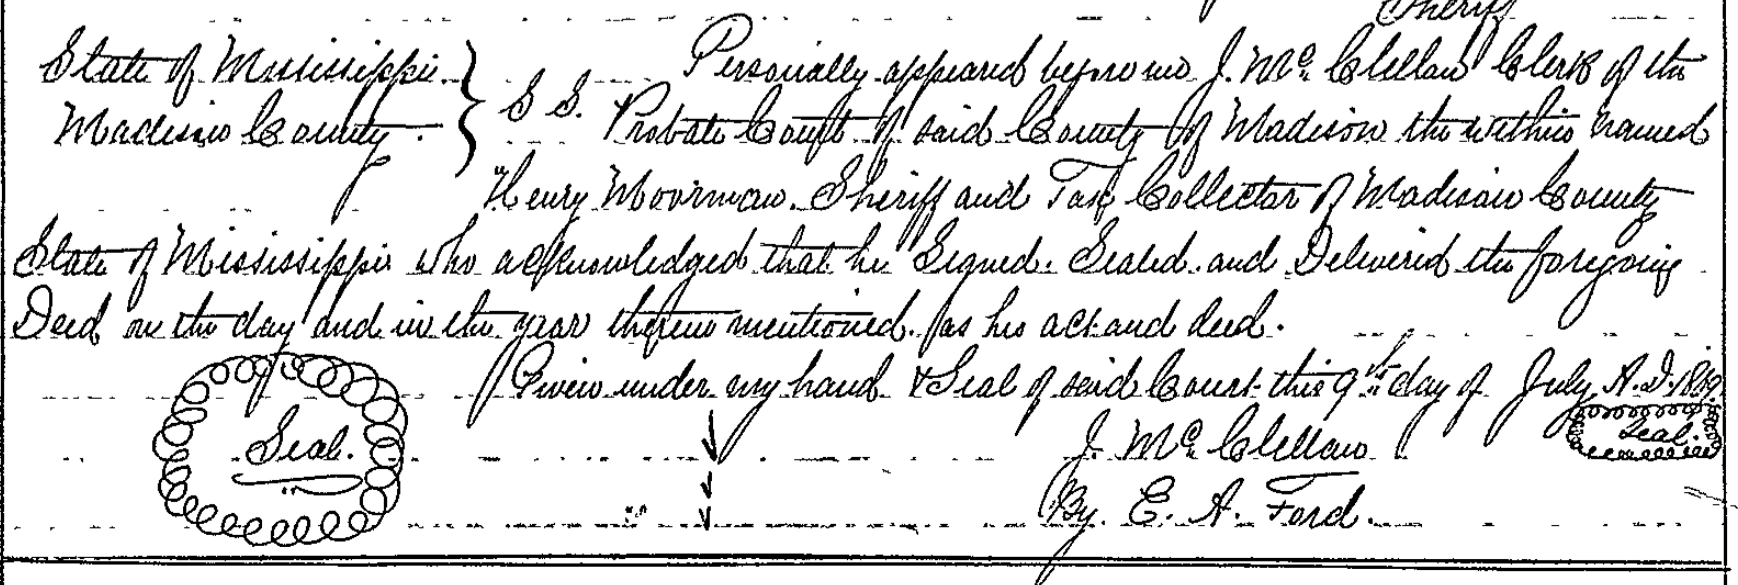 Sheriff
State of Mississippi. } Personally appeared before me J. Mc. Clellan Clerk of the
Madison County. } S S. Probate Court of said County of Madison the within named
Henry Moorman. Sheriff and Tax Collector of Madison County
State of Mississippi who acknowledged that he Signed. Sealed. and Delivered the foregoing
Deed on the day and in the year therein mentioned. as his act and deed.
Given under my hand & Seal of said Court this 9th day of July A.D.
Seal. J. Mc. Clellan Seal.
By. E. A. Ford.